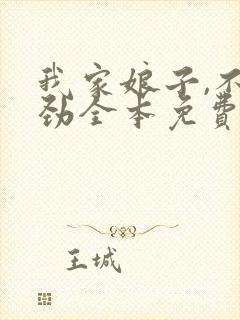 我家娘子,不
劲全本免費
王城